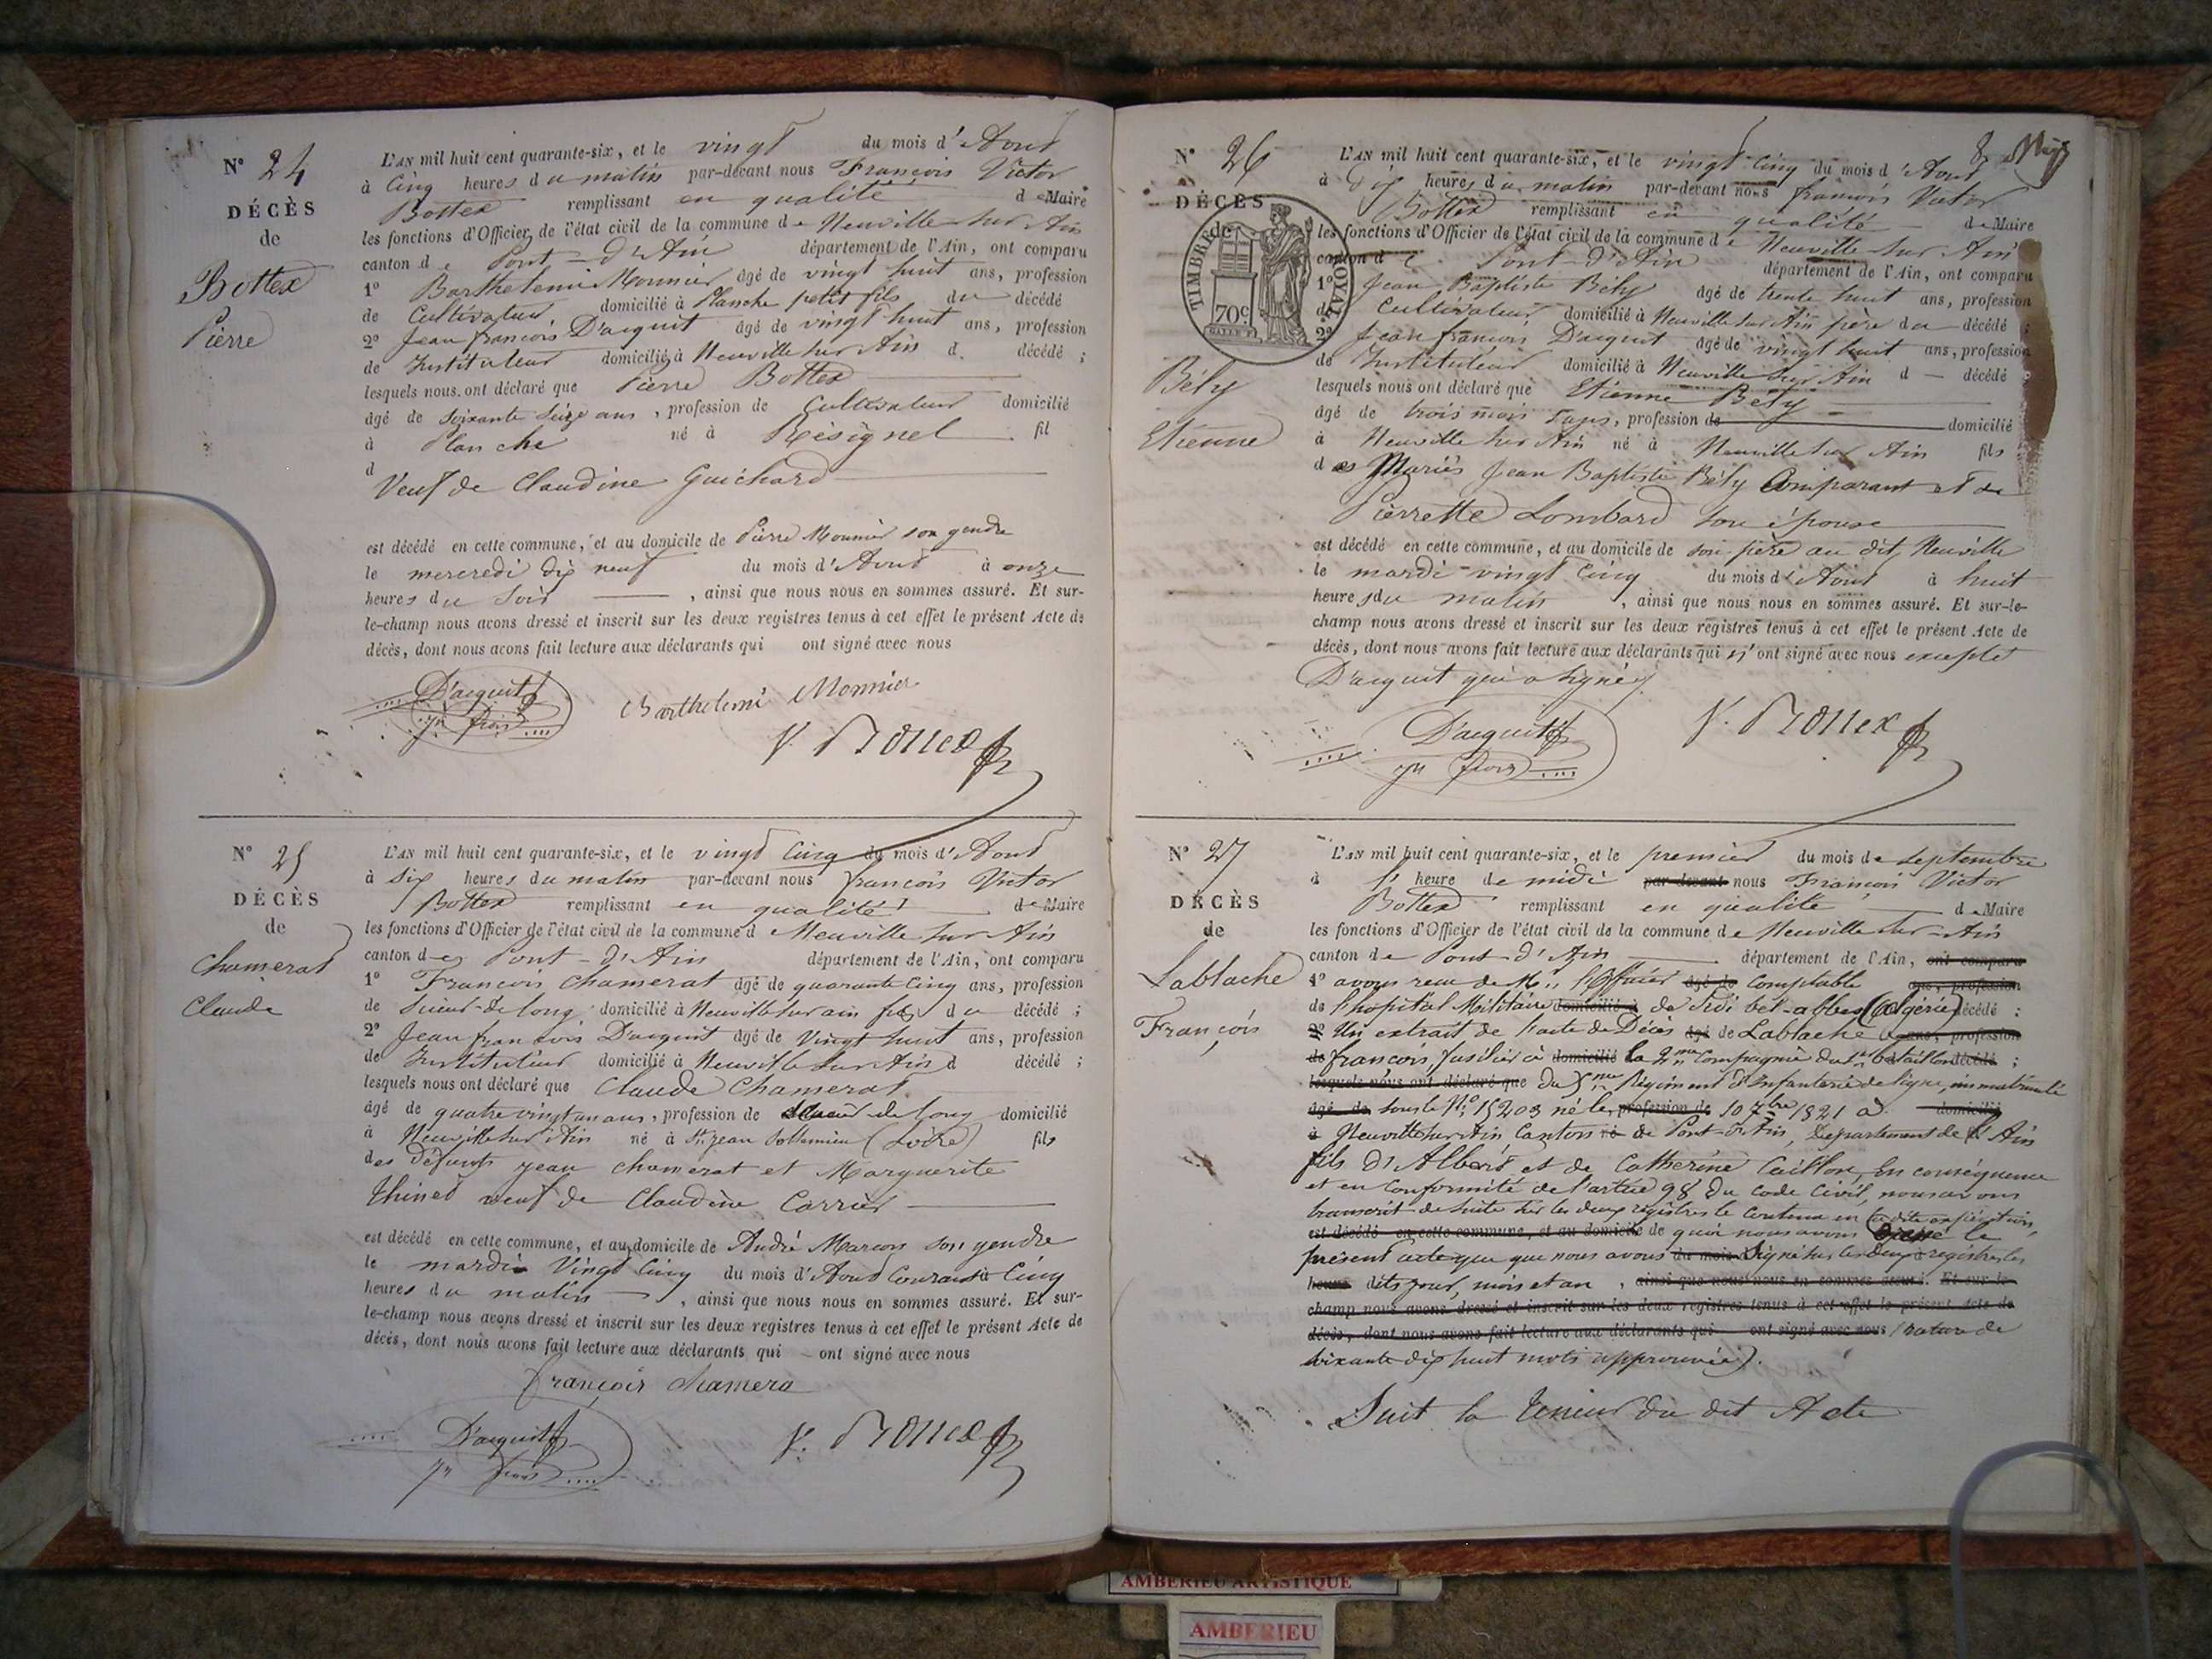 N° 24
DÉCÈS
de
Bottex
Pierre
L'AN mil huit cent quarante-six, et le vingt du mois d'Aout
à Cinq heures du matin par-devant nous François Victor
Bottex remplissant en qualité de Maire
les fonctions d'Officier de l'état civil de la commune de Neuville sur Ain
canton de Pont-d'Ain département de l'Ain, ont comparu
1° Barthelemi Monnier âgé de vingt huit ans, profession
de Cultivateur domicilié à Planche petit fils du décédé
2° Jean françois D'acquit âgé de vingt huit ans, profession
de Instituteur domicilié à Neuville sur Ain d. décédé ;
lesquels nous ont déclaré que Pierre Bottex
âgé de soixante seize ans, profession de Cultivateur domicilié
à Planche né à Résignel fil
d
Veuf de Claudine Guichard
est décédé en cette commune, et au domicile de Pierre Monnier son gendre
le mercredi dix neuf du mois d'Aout à onze
heures du soir , ainsi que nous nous en sommes assuré. Et sur-
le-champ nous avons dressé et inscrit sur les deux registres tenus à cet effet le présent Acte de
décès, dont nous avons fait lecture aux déclarants qui ont signé avec nous
D'acquit Barthelemi Monnier
jn frois V. Bottex
N° 25
DÉCÈS
de
Chamerat
Claude
L'AN mil huit cent quarante-six, et le vingt cinq du mois d'Aout
à six heures du matin par-devant nous françois Victor
Bottex remplissant en qualité de Maire
les fonctions d'Officier de l'état civil de la commune d Neuville sur Ain
canton de Pont-d'Ain département de l'Ain, ont comparu
1° François Chamerat âgé de quarante cinq ans, profession
de Scieur-de long domicilié à Neuville sur ain fils du décédé ;
2° Jean françois D'acquit âgé de Vingt huit ans, profession
de Instituteur domicilié à Neuville sur Ain d décédé ;
lesquels nous ont déclaré que Claude Chamerat
âgé de quatre vingt un ans, profession de scieur de long domicilié
à Neuville sur Ain né à St. jean Sollemieu (Loire) fils
des défunts jean chamerat et Marguerite
Thinet veuf de Claudine Carrier
est décédé en cette commune, et au domicile de André Marcon son gendre
le mardi Vingt Cinq du mois d'Aout Courant à Cinq
heures du matin , ainsi que nous nous en sommes assuré. Et sur-
le-champ nous avons dressé et inscrit sur les deux registres tenus à cet effet le présent Acte de
décès, dont nous avons fait lecture aux déclarants qui ont signé avec nous
françois chamera
D'acquit V. Bottex
jn frois
8
N° 26
DÉCÈS
de
TIMBRE ROYAL
70c
Bély
Etienne
L'AN mil huit cent quarante-six, et le vingt cinq du mois d'Aout
à dix heures du matin par-devant nous françois Victor
Bottex remplissant en qualité de Maire
les fonctions d'Officier de l'état civil de la commune de Neuville sur Ain
canton de Pont-d'Ain département de l'Ain, ont comparu
1° Jean Baptiste Bély âgé de trente huit ans, profession
de Cultivateur domicilié à Neuville sur Ain père du décédé ;
2° Jean françois D'acquit âgé de vingt huit ans, profession
de Instituteur domicilié à Neuville sur Ain d — décédé
lesquels nous ont déclaré que Etienne Bély
âgé de trois mois , profession de domicilié
à Neuville sur Ain né à Neuville sur Ain fils
des Mariés Jean Baptiste Bély Comparant et de
Pierrette Lombard son épouse
est décédé en cette commune, et au domicile de son père au dit Neuville
le mardi vingt cinq du mois d'Aout à huit
heures du matin , ainsi que nous nous en sommes assuré. Et sur-le-
champ nous avons dressé et inscrit sur les deux registres tenus à cet effet le présent Acte de
décès, dont nous avons fait lecture aux déclarants qui n'ont signé avec nous excepté
D'acquit qui a signé
D'acquit V. Bottex
jn frois
N° 27
DÉCÈS
de
Lablache
François
L'AN mil huit cent quarante-six, et le premier du mois de Septembre
à l'heure de midi par-devant nous François Victor
Bottex remplissant en qualité de Maire
les fonctions d'Officier de l'état civil de la commune de Neuville sur-Ain
canton de Pont-d'Ain département de l'Ain, ont comparu
1° avons reçu de Mr. l'Officier âgé de Comptable ans, profession
de l'hopital Militaire domicilié à de Sidi bel-abbes (algérie) décédé ;
2° Un extrait de l'acte de Décès âgé de Lablache ans, profession
de françois, fusilier à domicilié la 2me Compagnie du 1er bataillon décédé ;
lesquels nous ont déclaré que du me Régiment d'Infanterie de ligne, immatriculé
âgé de sous le N° 15203 né le profession de 10 7bre 1821 à domicilié
à Neuville sur Ain Canton né à de Pont-d'Ain, Departement de l'Ain
fils d'Albert et de Catherine Caillon, En conséquence
et en Conformité de l'article 98 du Code Civil, nous avons
transcrit de suite sur les deux registres le Contenu en la dite expédition,
est décédé en cette commune, et au domicile de quoi nous avons dressé le
présent acte que nous avons du mois Signé sur les deux registres les
heure dits jour, mois et an , ainsi que nous nous en sommes assuré. Et sur-le-
champ nous avons dressé et inscrit sur les deux registres tenus à cet effet le présent Acte de
décès, dont nous avons fait lecture aux déclarants qui ont signé avec nous (rature de
soixante dix huit mots approuvée).
Suit la Teneur du dit Acte
AMBERIEU ARTISTIQUE
AMBERIEU